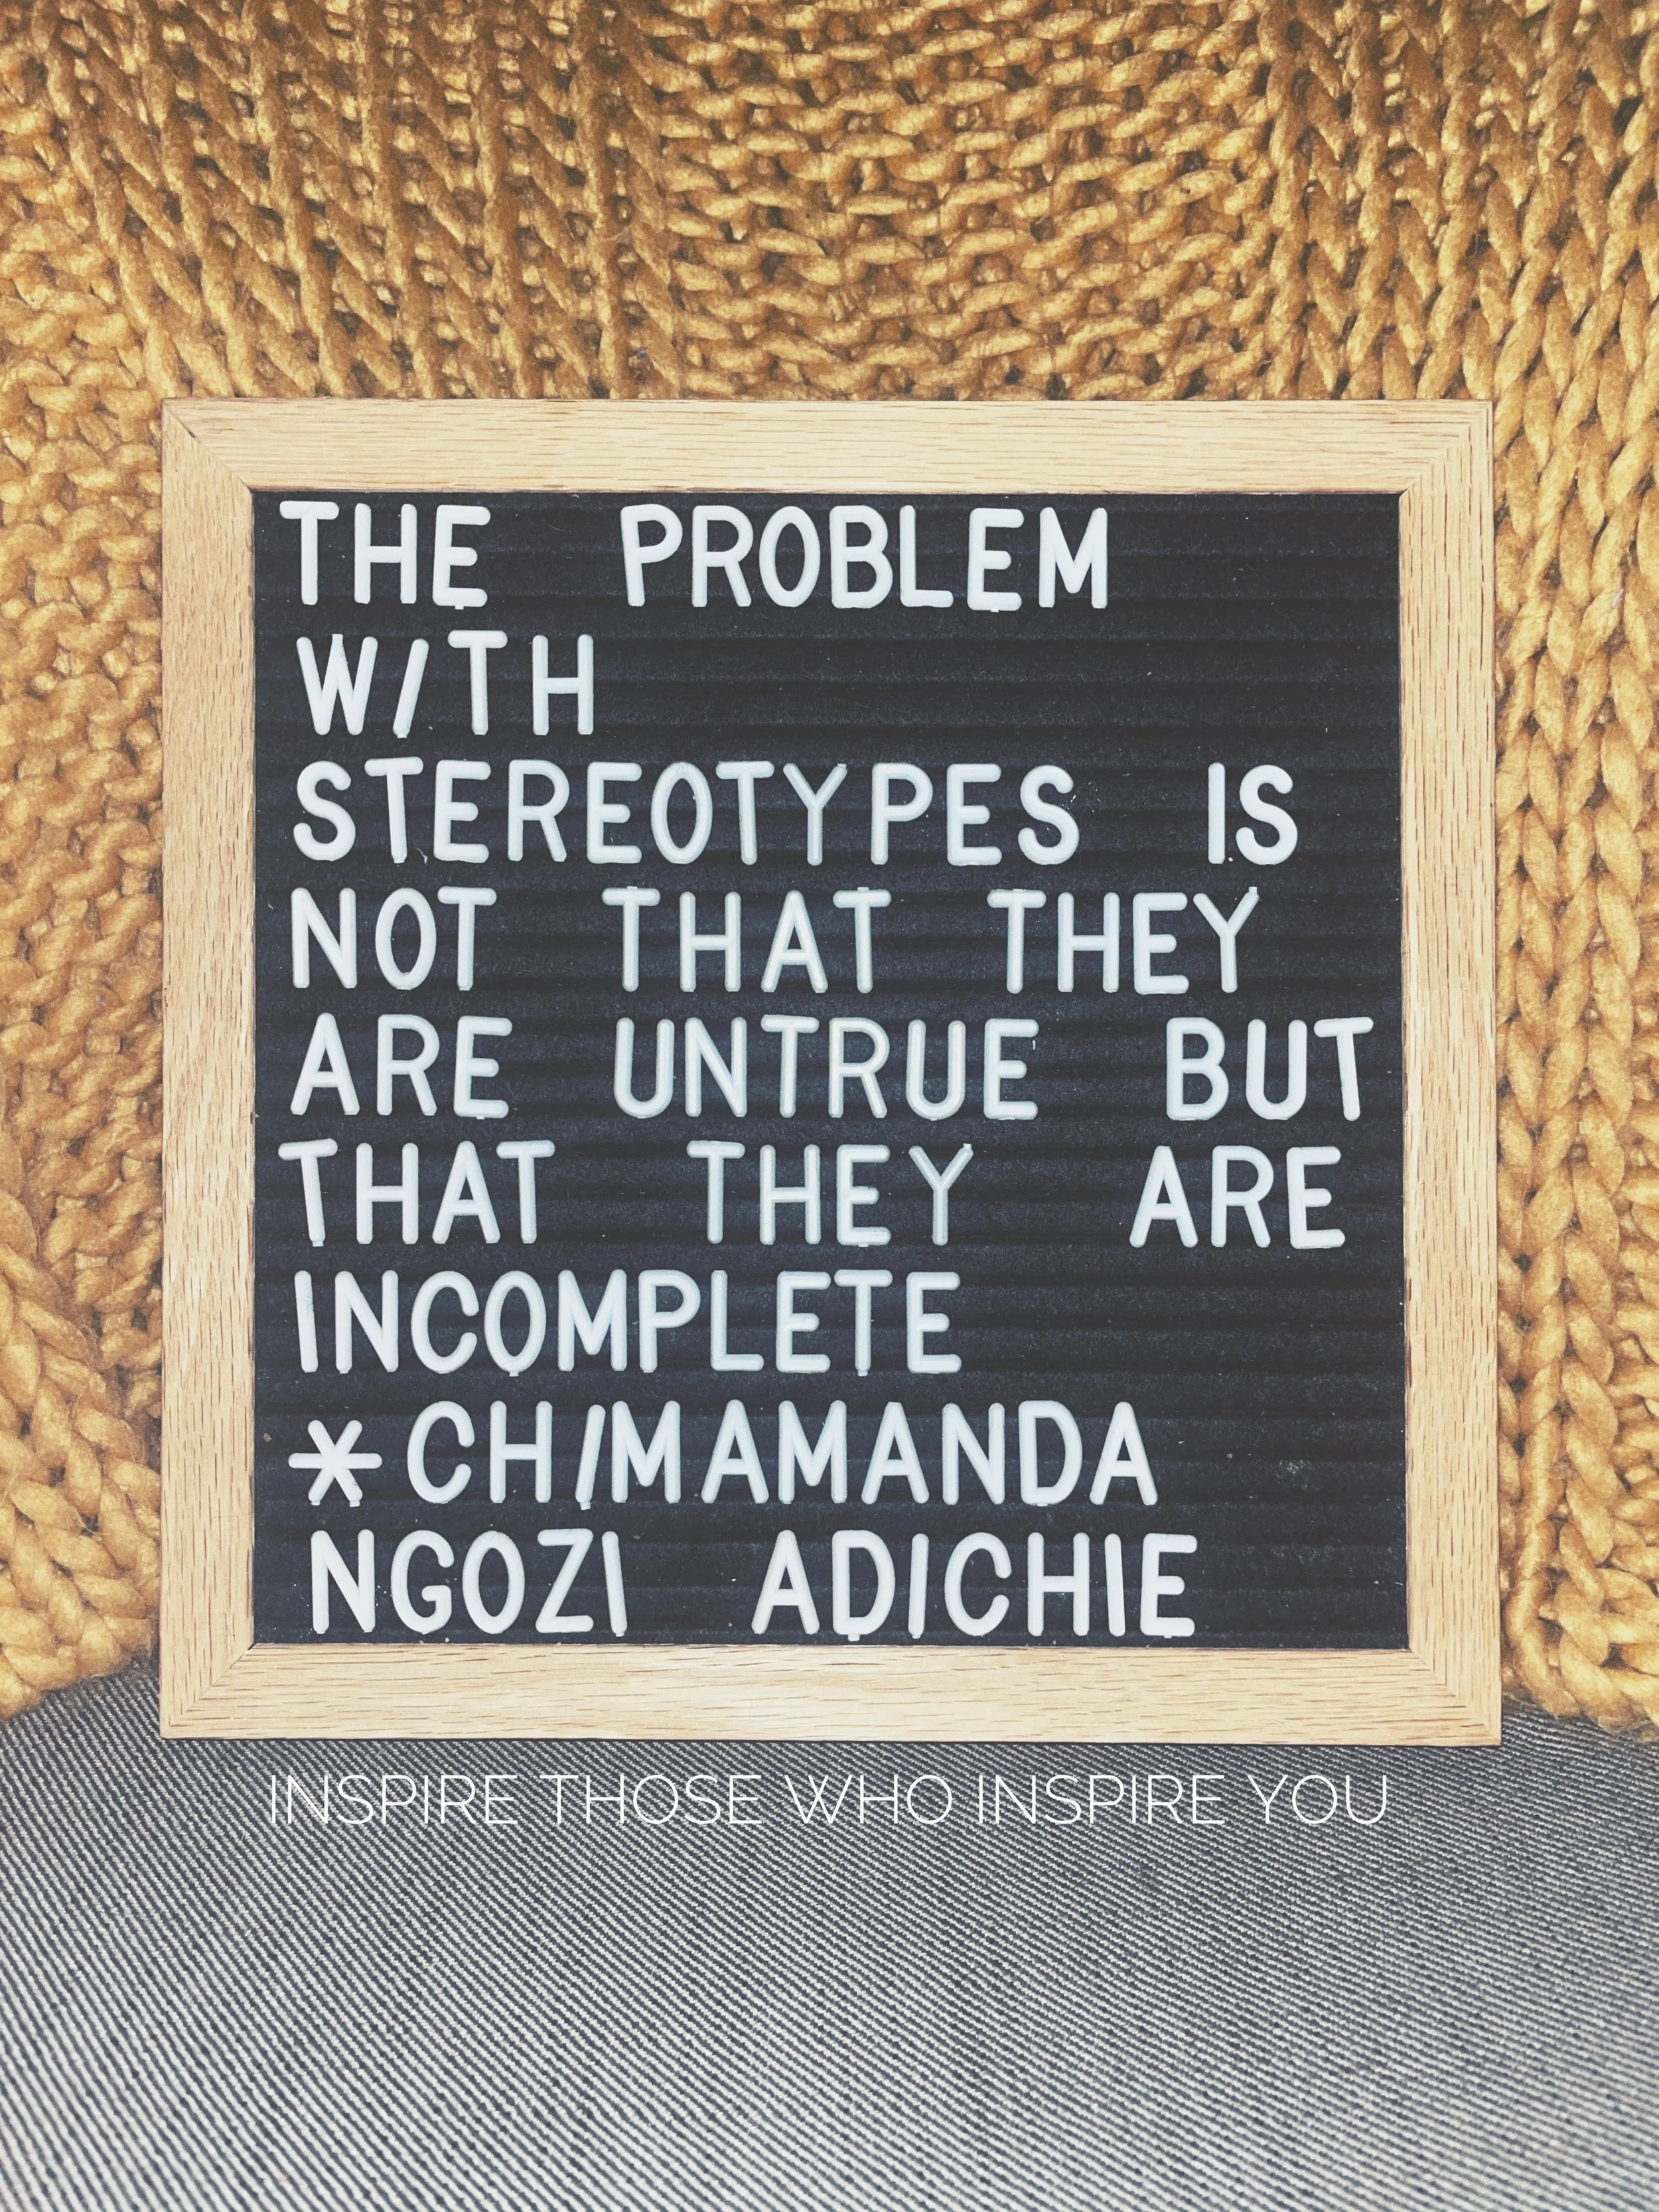 THE PROBLEM
W/TH
STEREOTYPES IS
NOT THAT THEY
ARE UNTRUE BUT
THAT THEY ARE
INCOMPLETE
*CH/MAMANDA
NGOZI ADICHIE
INSPIRE THOSE WHO INSPIRE YOU